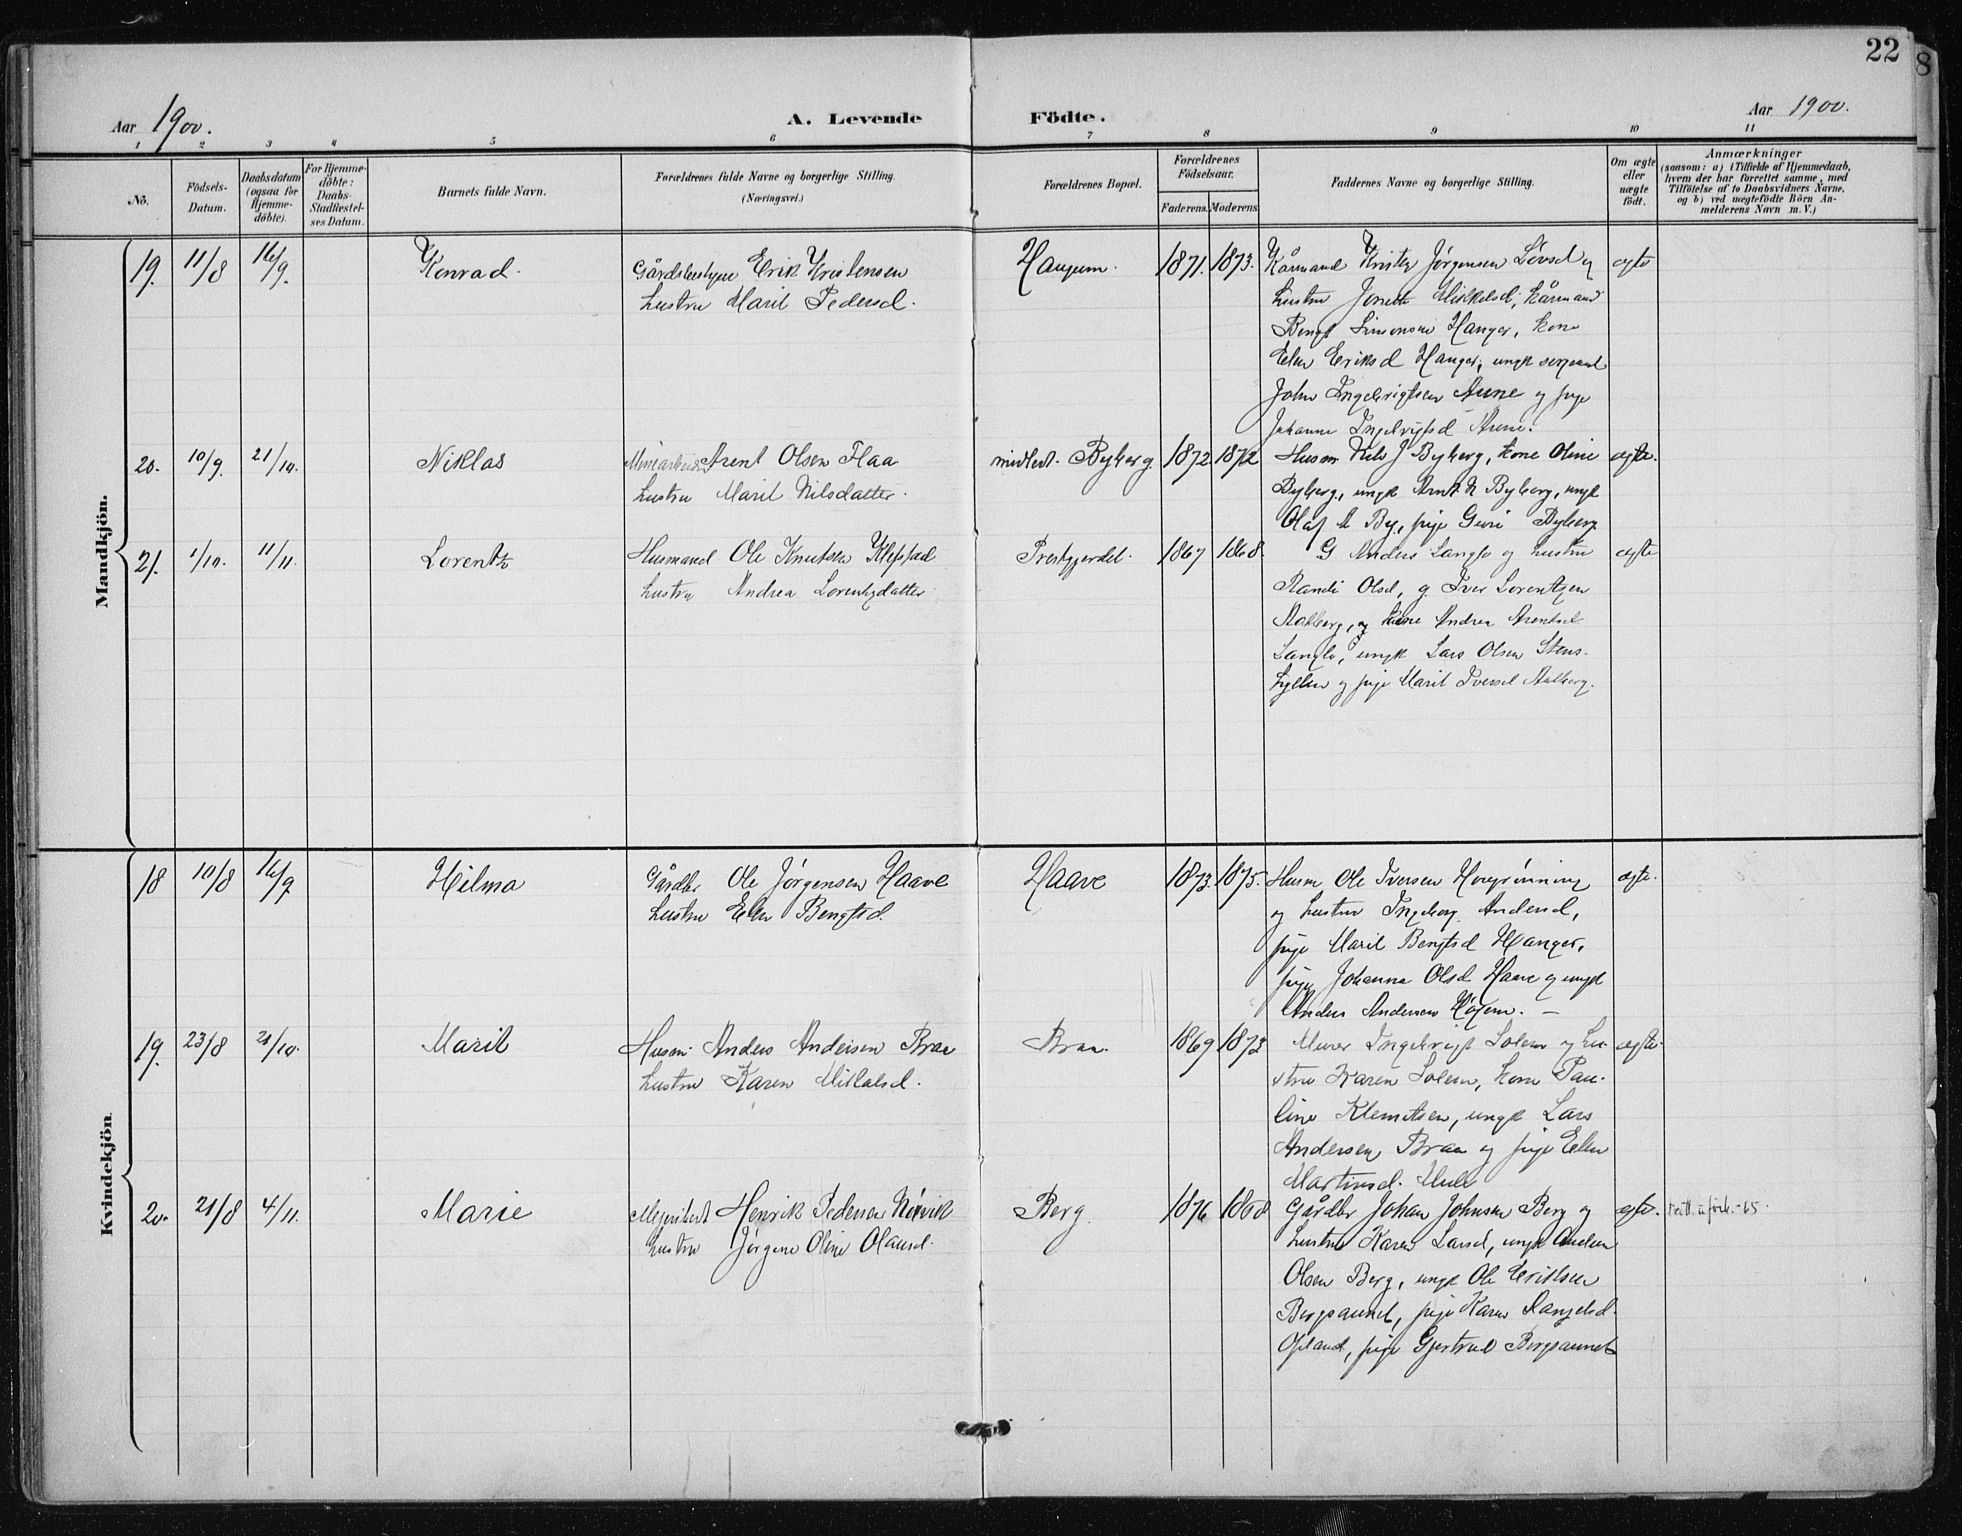 22
8
Aar 1900.
A. Levende Födte.
Aar 1900.
1 2 3 4 5 6 7 8 9 10 11
No.
Födsels-
Datum.
Daabsdatum
(ogsaa for
Hjemme-
döbte).
For Hjemme-
döbte:
Daabs-
Stadfæstel-
ses Datum.
Barnets fulde Navn.
Forældrenes fulde Navne og borgerlige Stilling.
(Næringsvei.)
Forældrenes Bopæl.
Forældrenes
Födselsaar.
Faderens. Moderens
Faddernes Navne og borgerlige Stilling.
Om ægte
eller
uægte
födt.
Anmærkninger
(saasom: a) i Tilfælde af Hjemmedaab,
hvem der har forrettet samme, med
Tilföielse af to Daabsvidners Navne,
og b) ved uægtefödte Börn An-
melderens Navn m. V.)
Mandkjön.
19. 11/8 16/9. Konrad. Gårdbestyrer Erik Kristensen
hustru Marit Pedersd.
Haugum. 1871. 1873.
Kårmand Krist. Jørgensen Løvsd og
hustru Jonetta Mikkelsd, kårmand
Bengt Simonsen Hanger, kone
Elen Eriksd Hanger, ungk sergeant
John Ingebrigtsen Aune og pige
Johanne Ingebrigtsd Aune.
ægte
20. 10/9. 21/10. Niklas Minearbeider Arent Olsen Flaa
hustru Marit Nilsdatter.
midlert. Byberg. 1872. 1872
Husm Nils J Byberg, kone Oline
Byberg, ungk Arnt N Byberg, ungk
Olaf A By, pige Guri Byberg
ægte.
21. 1/10. 11/11. Lorentz Husmand Ole Knutsen Kleppad
hustru Andrea Lorentzdatter
Prestgjerdet. 1867 1868.
G Anders Langlo og hustru
Randi Olsd, g. Iver Lorentzen
Aalberg, og kone Andrea Arentsd
Langlo, ungk Lars Olsen Stens-
hyllen og pige Marit Iversd Aalberg.
ægte
Kvindekjön.
18 10/8 16/9 Hilma Gårdbr Ole Jørgensen Haave
hustru Elen Bengtsd.
Haave 1873. 1875.
Husm Ole Iversen
og hustru Ingeborg Andersd,
pige Marit Bengtsd Hanger,
pige Johanna Olsd Haave og ungk
Anders Andersen
ægte.
19. 23/8 21/10. Marit Husm. Anders Andersen Braa
hustru Karen Mikkelsd.
Braa. 1869 1873
Murer Ingebrigt Solem og hu-
stru Karen Solem, kone Pau-
line Klemetsen, ungk Lars
Andersen Braa og pige Elen
Martinsd.
ægte.
20. 21/8 4/11. Marie Meieribest Henrik Pedersen Nørvik
hustru Jørgine Oline Olausd.
Berg 1876 1868
Gårdbr Johan Johnsen Berg og
hustru Karen Larsd, ungk
Olsen Berg, ungk Ole Eriksen
Bergsaunet, pige Karen
Opland, pige Gjertrud Bergsaunet
ægte.